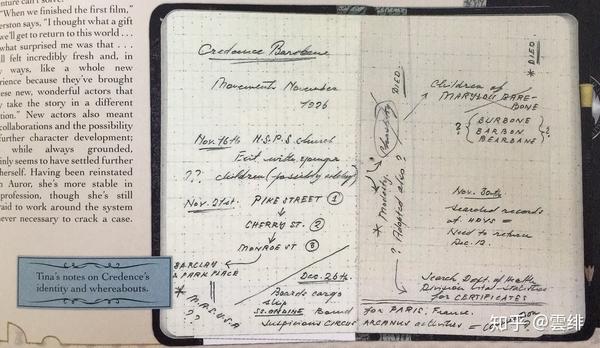 enture can't solve.
"When we finished the first film,"
erston says, "I thought what a gift
we'll get to return to this world . . .
what surprised me was that . . .
ll felt incredibly fresh and, in
y ways, like a whole new
rience because they've brought
ese new, wonderful actors that
y take the story in a different
tion." New actors also meant
ollaborations and the possibility
further character development;
while always grounded,
inly seems to have settled further
herself. Having been reinstated
n Auror, she's more stable in
profession, though she's still
raid to work around the system
ever necessary to crack a case.
Tina's notes on Credence's
identity and whereabouts.
Credence Barebone
Movements November
1926
Nov. 16th H.S.P.S church
Exit with younger
?? children (possibly
Nov. 21st. PIKE STREET 1
CHERRY ST. 2
MONROE ST 3
BARCLAY
& PARK PLACE
* M.A.C.U.S.A
??
Dec. 26th
Boards cargo
ship
SS. ONDINE Bound for PARIS, France.
Suspicious CIRCUS ARCANUS activities =
* Modesty.
Chastity DIED.
? Adopted also ?
* DIED.
Children of
MARYLOU BARE-
BONE
? { BURBONE
BARBON
BEARBANE } ?
Nov. 30th
Searched records
at HDVS =
Need to return
Dec. 12.
Search Dept. of Health
Division Vital Statistics
for CERTIFICATES
知乎 @雲绯